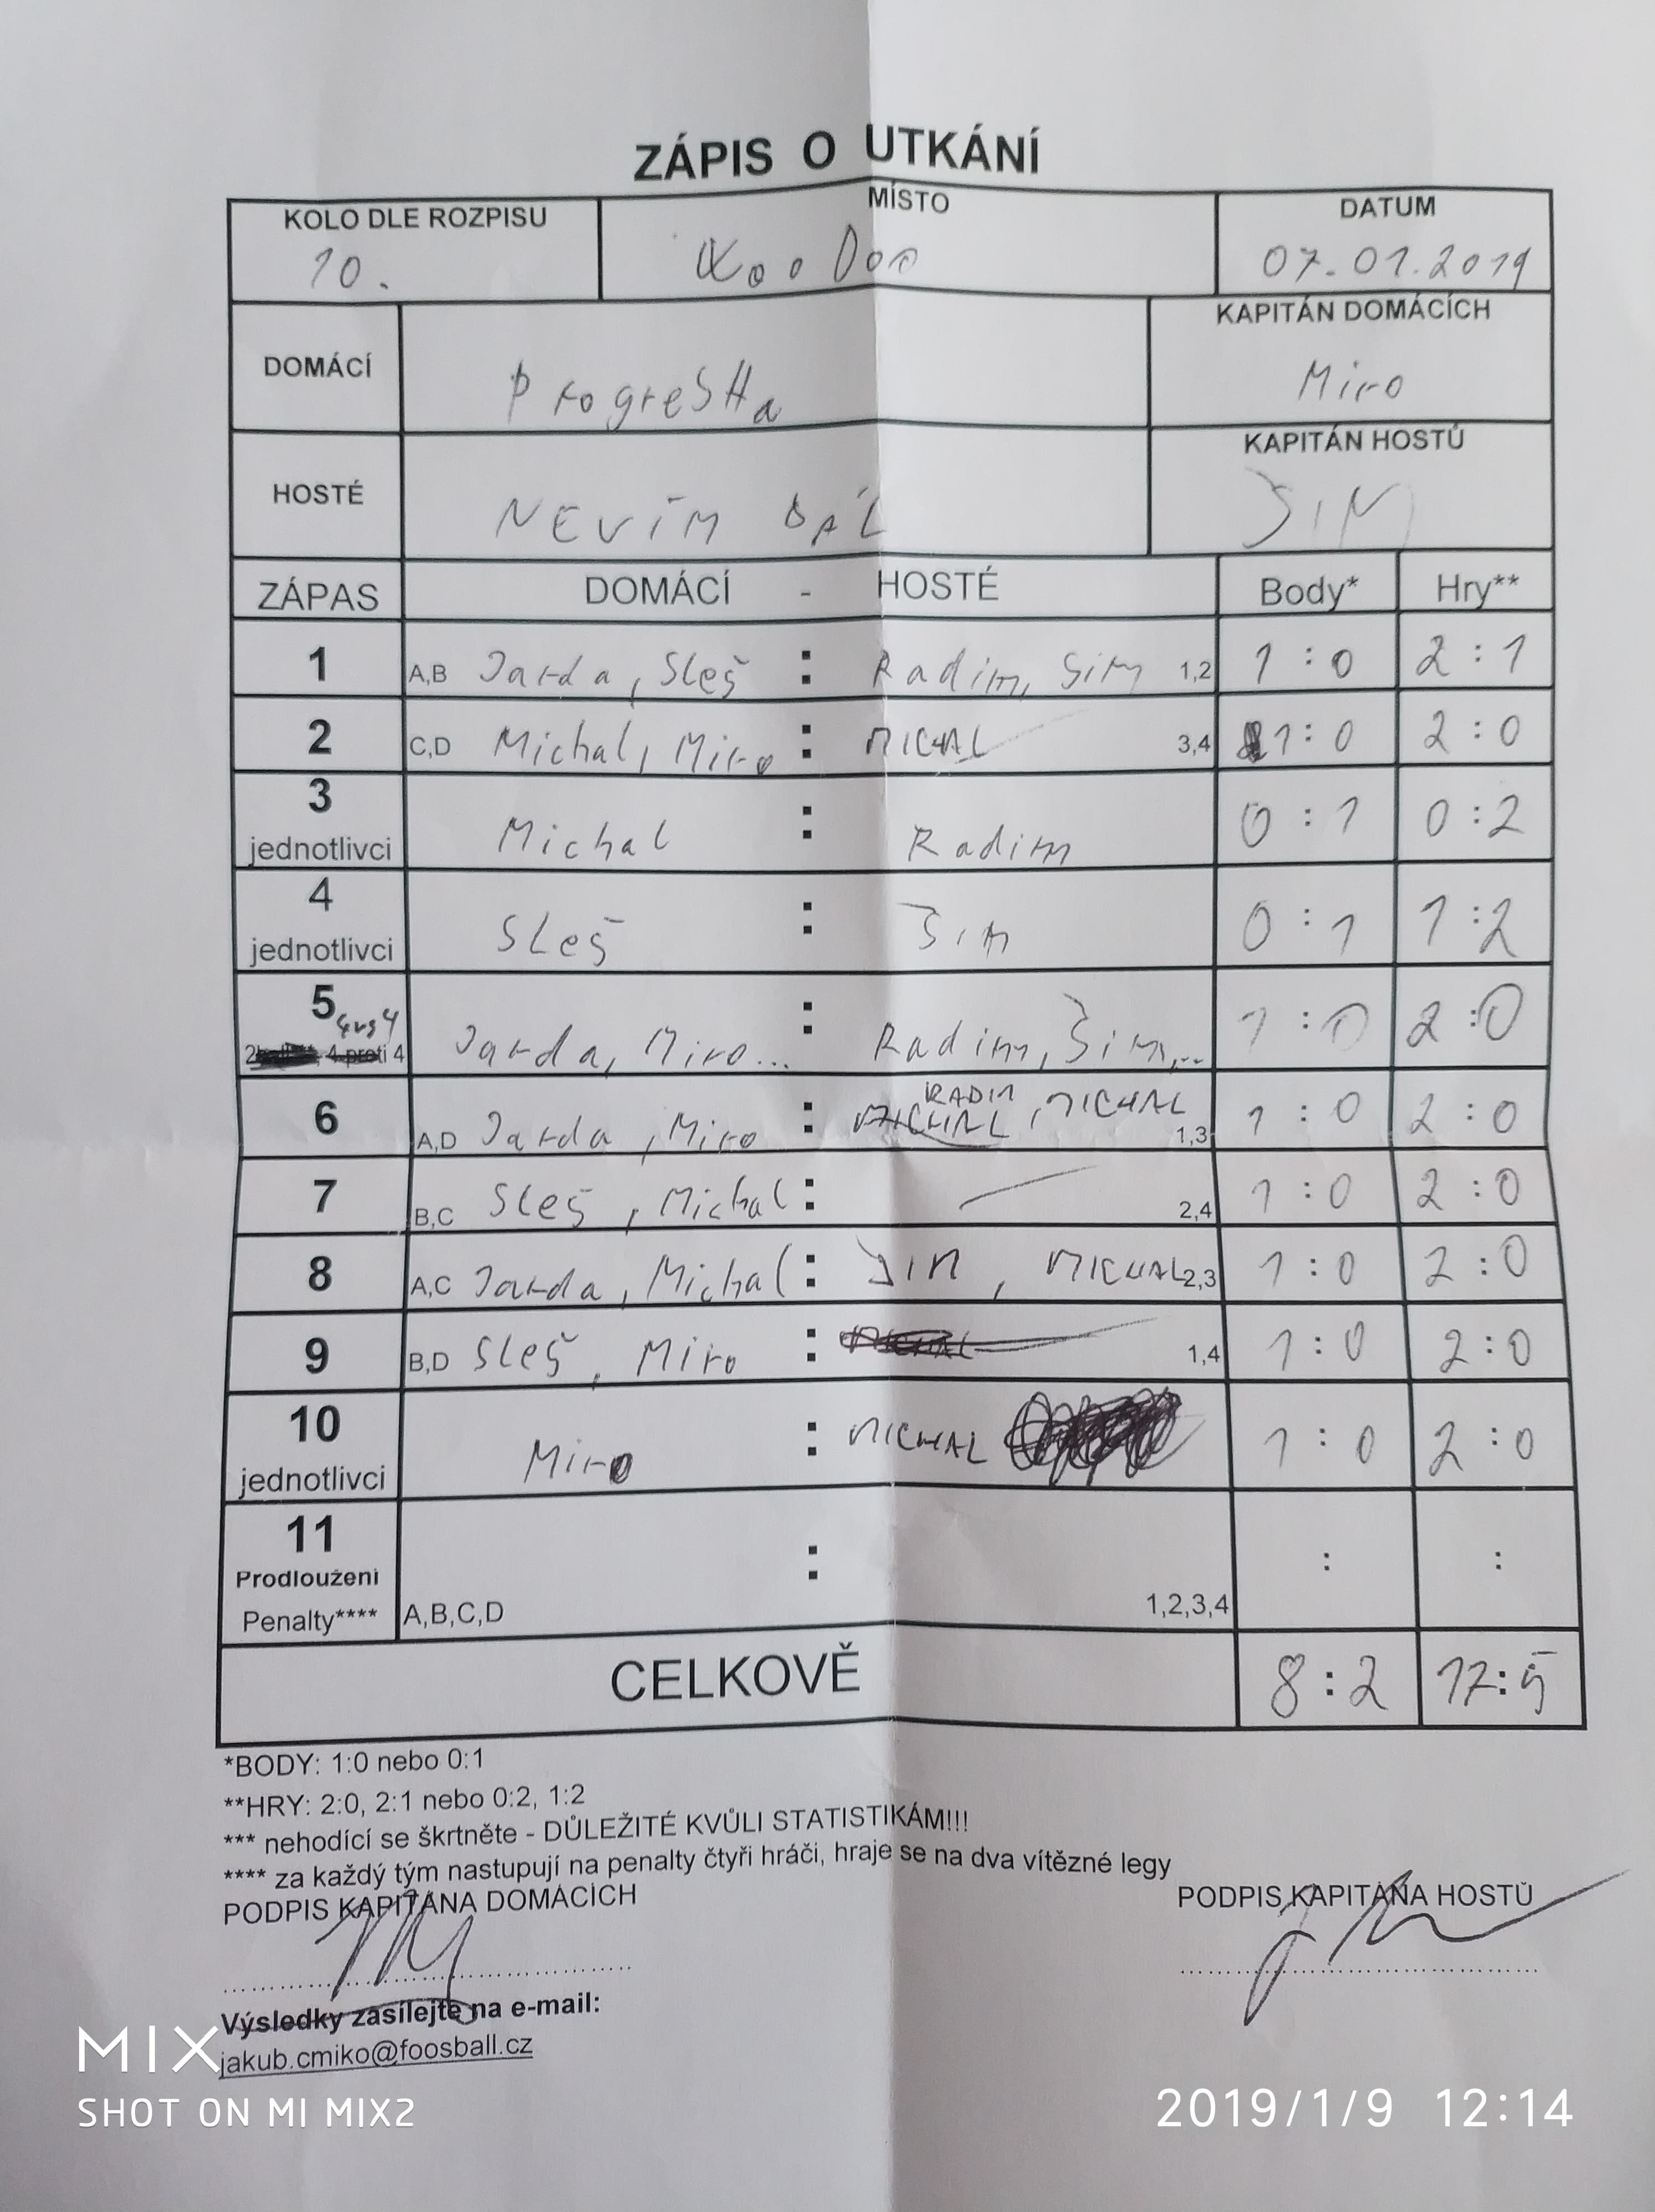 ZÁPIS O UTKÁNÍ
KOLO DLE ROZPISU MÍSTO DATUM
10. VooDoo 07.01.2019
DOMÁCÍ ProgresHa KAPITÁN DOMÁCÍCH
Miro
HOSTÉ NEVÍM DÁL KAPITÁN HOSTŮ
ŠIM
ZÁPAS DOMÁCÍ - HOSTÉ Body* Hry**
1 A,B Jarda, Sleš : Radim, Šim 1,2 1:0 2:1
2 C,D Michal, Miro : MICHAL 3,4 1:0 2:0
3 jednotlivci Michal : Radim 0:1 0:2
4 jednotlivci Sleš : Šim 0:1 1:2
5 4vs4 Jarda, Miro... : Radim, Šim,... 1:0 2:0
4 proti 4
6 A,D Jarda, Miro : RADIM, MICHAL 1,3 1:0 2:0
7 B,C Sleš, Michal : 2,4 1:0 2:0
8 A,C Jarda, Michal : ŠIM, MICHAL 2,3 1:0 2:0
9 B,D Sleš, Miro : 1,4 1:0 2:0
10 jednotlivci Miro : MICHAL 1:0 2:0
11 : : :
Prodloužení
Penalty**** A,B,C,D 1,2,3,4
CELKOVĚ 8:2 17:5
*BODY: 1:0 nebo 0:1
**HRY: 2:0, 2:1 nebo 0:2, 1:2
*** nehodící se škrtněte - DŮLEŽITÉ KVŮLI STATISTIKÁM!!!
**** za každý tým nastupují na penalty čtyři hráči, hraje se na dva vítězné legy
PODPIS KAPITÁNA DOMÁCÍCH PODPIS KAPITÁNA HOSTŮ
Výsledky zasílejte na e-mail:
jakub.cmiko@foosball.cz
MIX
SHOT ON MI MIX2
2019/1/9 12:14